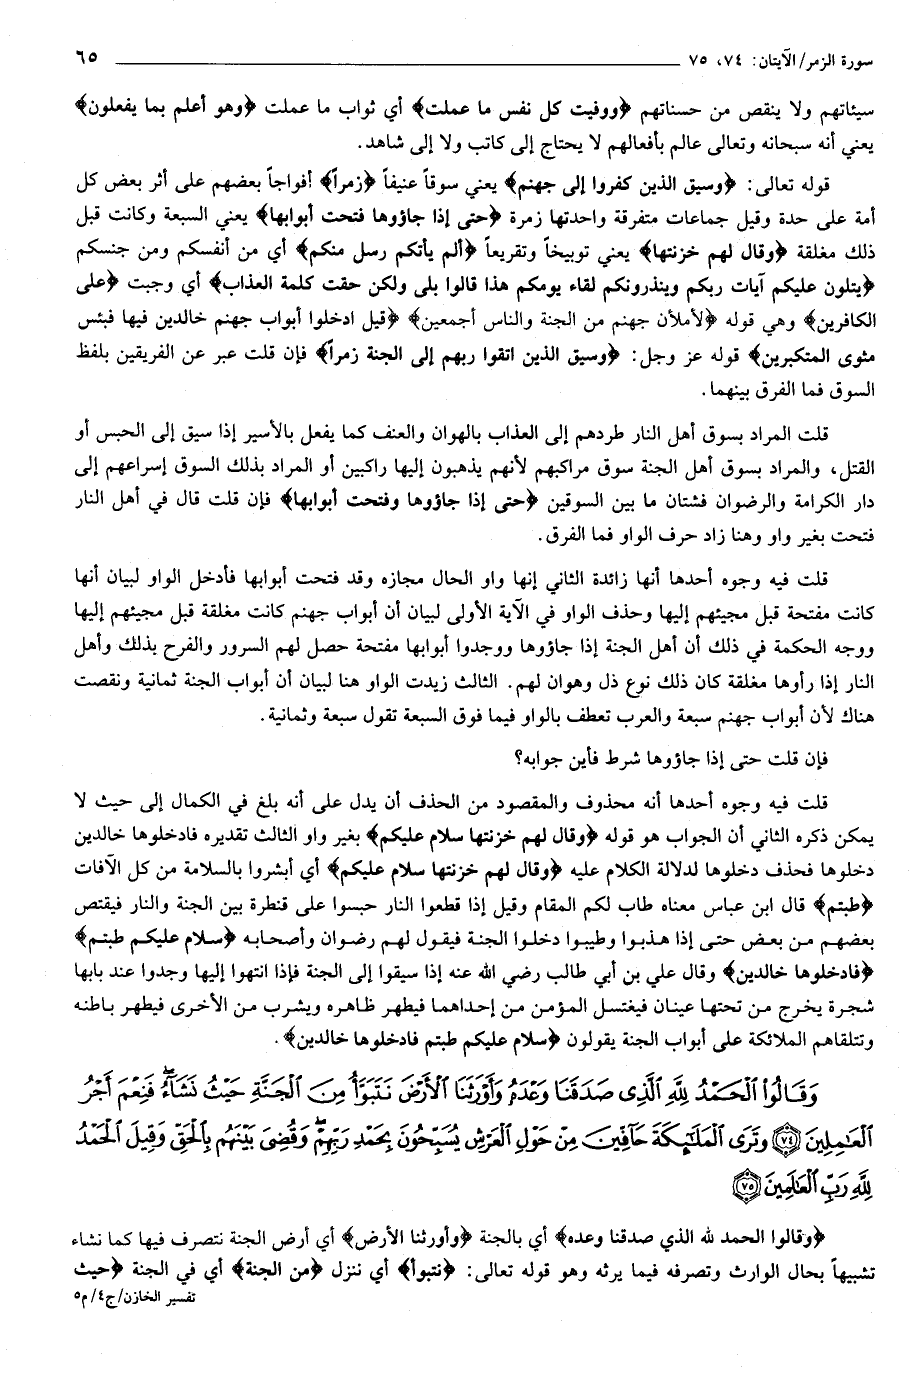 سورة الزمر/ الآيتان: ٧٤، ٧٥ ٦٥
سيئاتهم ولا ينقص من حسناتهم ﴿ووفيت كل نفس ما عملت﴾ أي ثواب ما عملت ﴿وهو أعلم بما يفعلون﴾
يعني أنه سبحانه وتعالى عالم بأفعالهم لا يحتاج إلى كاتب ولا إلى شاهد.
قوله تعالى: ﴿وسيق الذين كفروا إلى جهنم﴾ يعني سوقاً عنيفاً ﴿زمراً﴾ أفواجاً بعضهم على أثر بعض كل
أمة على حدة وقيل جماعات متفرقة واحدتها زمرة ﴿حتى إذا جاؤوها فتحت أبوابها﴾ يعني السبعة وكانت قبل
ذلك مغلقة ﴿وقال لهم خزنتها﴾ يعني توبيخاً وتقريعاً ﴿ألم يأتكم رسل منكم﴾ أي من أنفسكم ومن جنسكم
﴿يتلون عليكم آيات ربكم وينذرونكم لقاء يومكم هذا قالوا بلى ولكن حقت كلمة العذاب﴾ أي وجبت ﴿على
الكافرين﴾ وهي قوله ﴿لأملأن جهنم من الجنة والناس أجمعين﴾ ﴿قيل ادخلوا أبواب جهنم خالدين فيها فبئس
مثوى المتكبرين﴾ قوله عز وجل: ﴿وسيق الذين اتقوا ربهم إلى الجنة زمراً﴾ فإن قلت عبر عن الفريقين بلفظ
السوق فما الفرق بينهما.
قلت المراد بسوق أهل النار طردهم إلى العذاب بالهوان والعنف كما يفعل بالأسير إذا سيق إلى الحبس أو
القتل، والمراد بسوق أهل الجنة سوق مراكبهم لأنهم يذهبون إليها راكبين أو المراد بذلك السوق إسراعهم إلى
دار الكرامة والرضوان فشتان ما بين السوقين ﴿حتى إذا جاؤوها وفتحت أبوابها﴾ فإن قلت قال في أهل النار
فتحت بغير واو وهنا زاد حرف الواو فما الفرق.
قلت فيه وجوه أحدها أنها زائدة الثاني إنها واو الحال مجازه وقد فتحت أبوابها فأدخل الواو لبيان أنها
كانت مفتحة قبل مجيئهم إليها وحذف الواو في الآية الأولى لبيان أن أبواب جهنم كانت مغلقة قبل مجيئهم إليها
ووجه الحكمة في ذلك أن أهل الجنة إذا جاؤوها ووجدوا أبوابها مفتحة حصل لهم السرور والفرح بذلك وأهل
النار إذا رأوها مغلقة كان ذلك نوع ذل وهوان لهم. الثالث زيدت الواو هنا لبيان أن أبواب الجنة ثمانية ونقصت
هناك لأن أبواب جهنم سبعة والعرب تعطف بالواو فيما فوق السبعة تقول سبعة وثمانية.
فإن قلت حتى إذا جاؤوها شرط فأين جوابه؟
قلت فيه وجوه أحدها أنه محذوف والمقصود من الحذف أن يدل على أنه بلغ في الكمال إلى حيث لا
يمكن ذكره الثاني أن الجواب هو قوله ﴿وقال لهم خزنتها سلام عليكم﴾ بغير واو الثالث تقديره فادخلوها خالدين
دخلوها فحذف دخلوها لدلالة الكلام عليه ﴿وقال لهم خزنتها سلام عليكم﴾ أي أبشروا بالسلامة من كل الآفات
﴿طبتم﴾ قال ابن عباس معناه طاب لكم المقام وقيل إذا قطعوا النار حبسوا على قنطرة بين الجنة والنار فيقتص
بعضهم من بعض حتى إذا هذبوا وطيبوا دخلوا الجنة فيقول لهم رضوان وأصحابه ﴿سلام عليكم طبتم﴾
﴿فادخلوها خالدين﴾ وقال علي بن أبي طالب رضي الله عنه إذا سيقوا إلى الجنة فإذا انتهوا إليها وجدوا عند بابها
شجرة يخرج من تحتها عينان فيغتسل المؤمن من إحداهما فيطهر ظاهره ويشرب من الأخرى فيطهر باطنه
وتتلقاهم الملائكة على أبواب الجنة يقولون ﴿سلام عليكم طبتم فادخلوها خالدين﴾.
وَقَالُواْ ٱلْحَمْدُ لِلَّهِ ٱلَّذِى صَدَقَنَا وَعْدَهُۥ وَأَوْرَثَنَا ٱلْأَرْضَ نَتَبَوَّأُ مِنَ ٱلْجَنَّةِ حَيْثُ نَشَآءُ ۖ فَنِعْمَ أَجْرُ
ٱلْعَٰمِلِينَ ﴿٧٤﴾ وَتَرَى ٱلْمَلَٰٓئِكَةَ حَآفِّينَ مِنْ حَوْلِ ٱلْعَرْشِ يُسَبِّحُونَ بِحَمْدِ رَبِّهِمْ ۖ وَقُضِىَ بَيْنَهُم بِٱلْحَقِّ وَقِيلَ ٱلْحَمْدُ
لِلَّهِ رَبِّ ٱلْعَٰلَمِينَ ﴿٧٥﴾
﴿وقالوا الحمد لله الذي صدقنا وعده﴾ أي بالجنة ﴿وأورثنا الأرض﴾ أي أرض الجنة نتصرف فيها كما نشاء
تشبيهاً بحال الوارث وتصرفه فيما يرثه وهو قوله تعالى: ﴿نتبوأ﴾ أي ننزل ﴿من الجنة﴾ أي في الجنة ﴿حيث
تفسير الخازن/ج٤/م٥